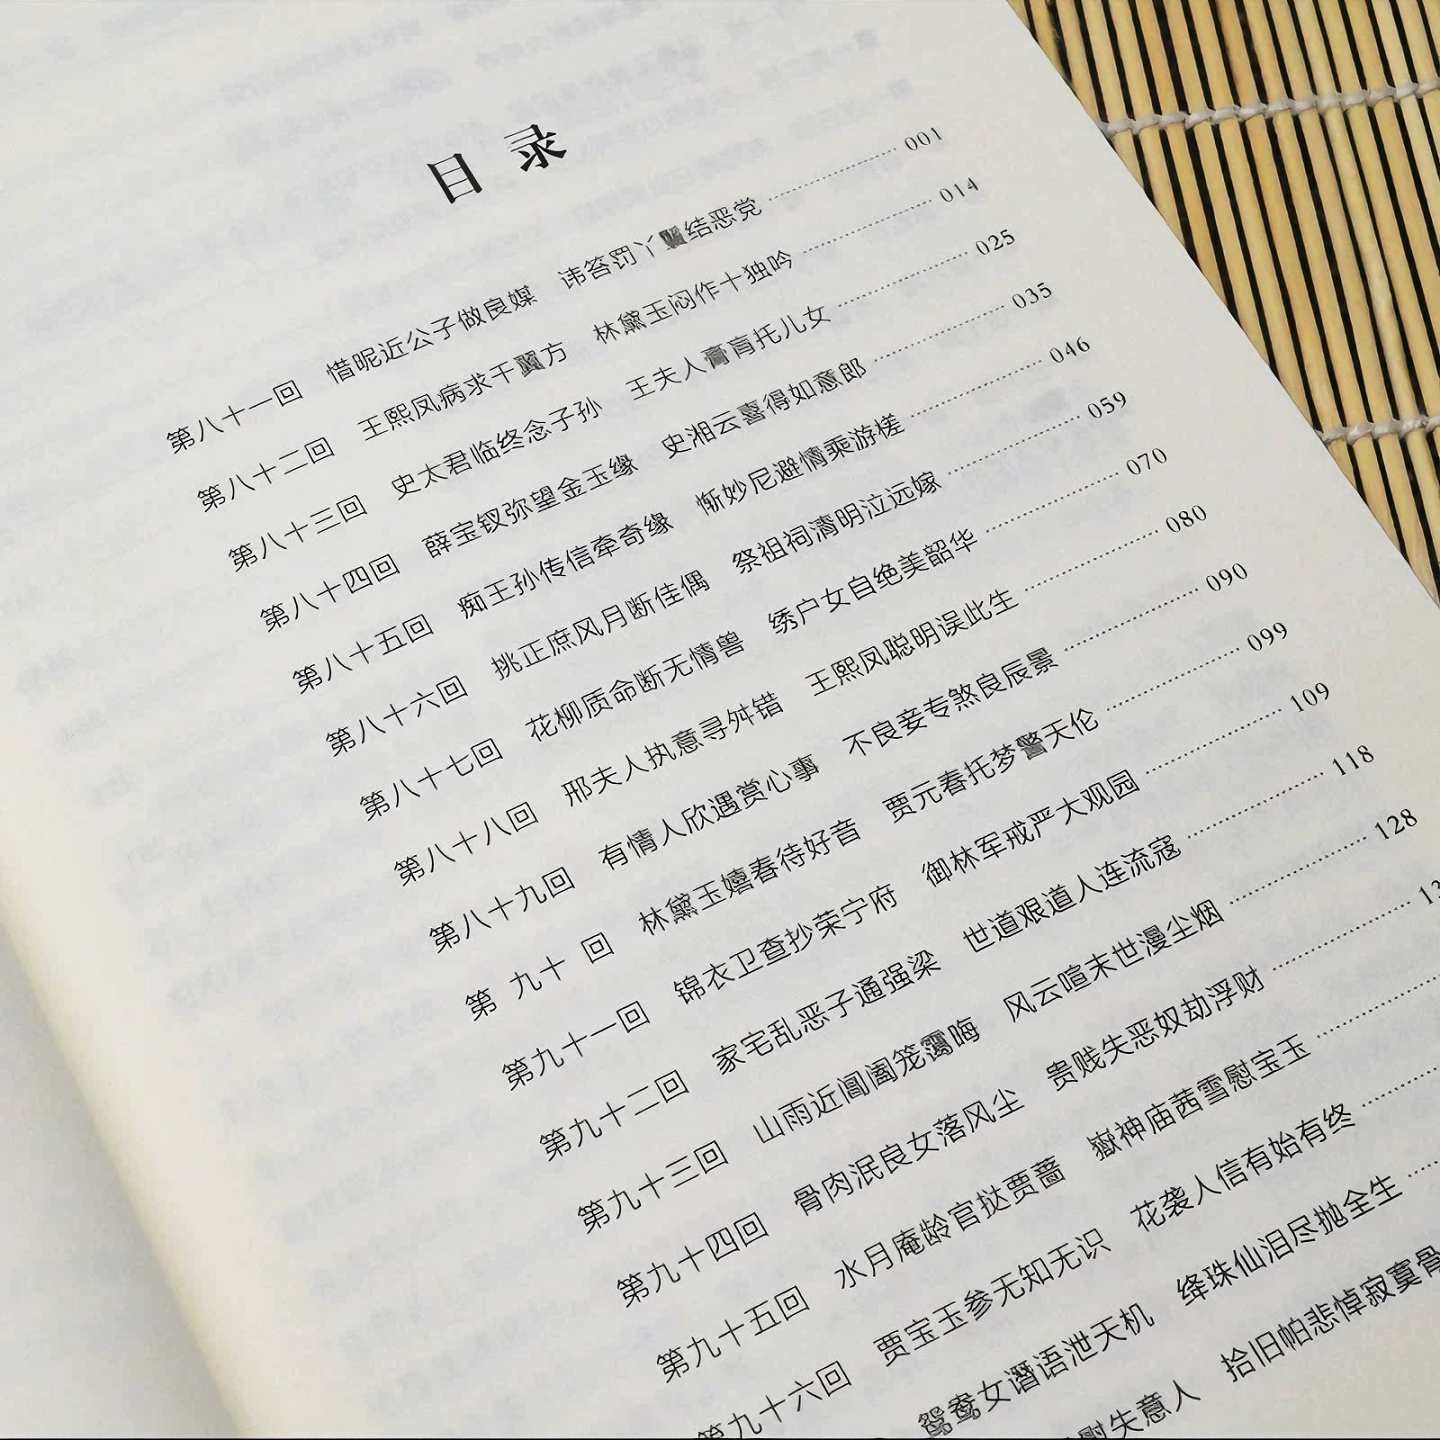 目录
第八十一回 惜昵近公子做良媒 讳笞罚丫鬟结恶党 001
第八十二回 王熙凤病求千翼方 林黛玉闷作十独吟 014
第八十三回 史太君临终念子孙 王夫人膏肓托儿女 025
第八十四回 薛宝钗弥望金玉缘 史湘云喜得如意郎 035
第八十五回 痴王孙传信牵奇缘 惭妙尼避情乘游槎 046
第八十六回 挑正庶风月断佳偶 祭祖祠清明泣远嫁 059
第八十七回 花柳质命断无情兽 绣户女自绝美韶华 070
第八十八回 邢夫人执意寻舛错 王熙凤聪明误此生 080
第八十九回 有情人欣遇赏心事 不良妾专煞良辰景 090
第九十回 林黛玉嬉春待好音 贾元春托梦警天伦 099
第九十一回 锦衣卫查抄荣宁府 御林军戒严大观园 109
第九十二回 家宅乱恶子通强梁 世道艰道人连流寇 118
第九十三回 山雨近阊阖笼霭晦 风云喧末世漫尘烟 128
第九十四回 骨肉泯良女落风尘 贵贱失恶奴劫浮财
第九十五回 水月庵龄官挞贾蔷 嶽神庙茜雪慰宝玉
第九十六回 贾宝玉参无知无识 花袭人信有始有终
鸳鸯女谮语泄天机 绛珠仙泪尽抛全生
慰失意人 拾旧帕悲悼寂寞骨